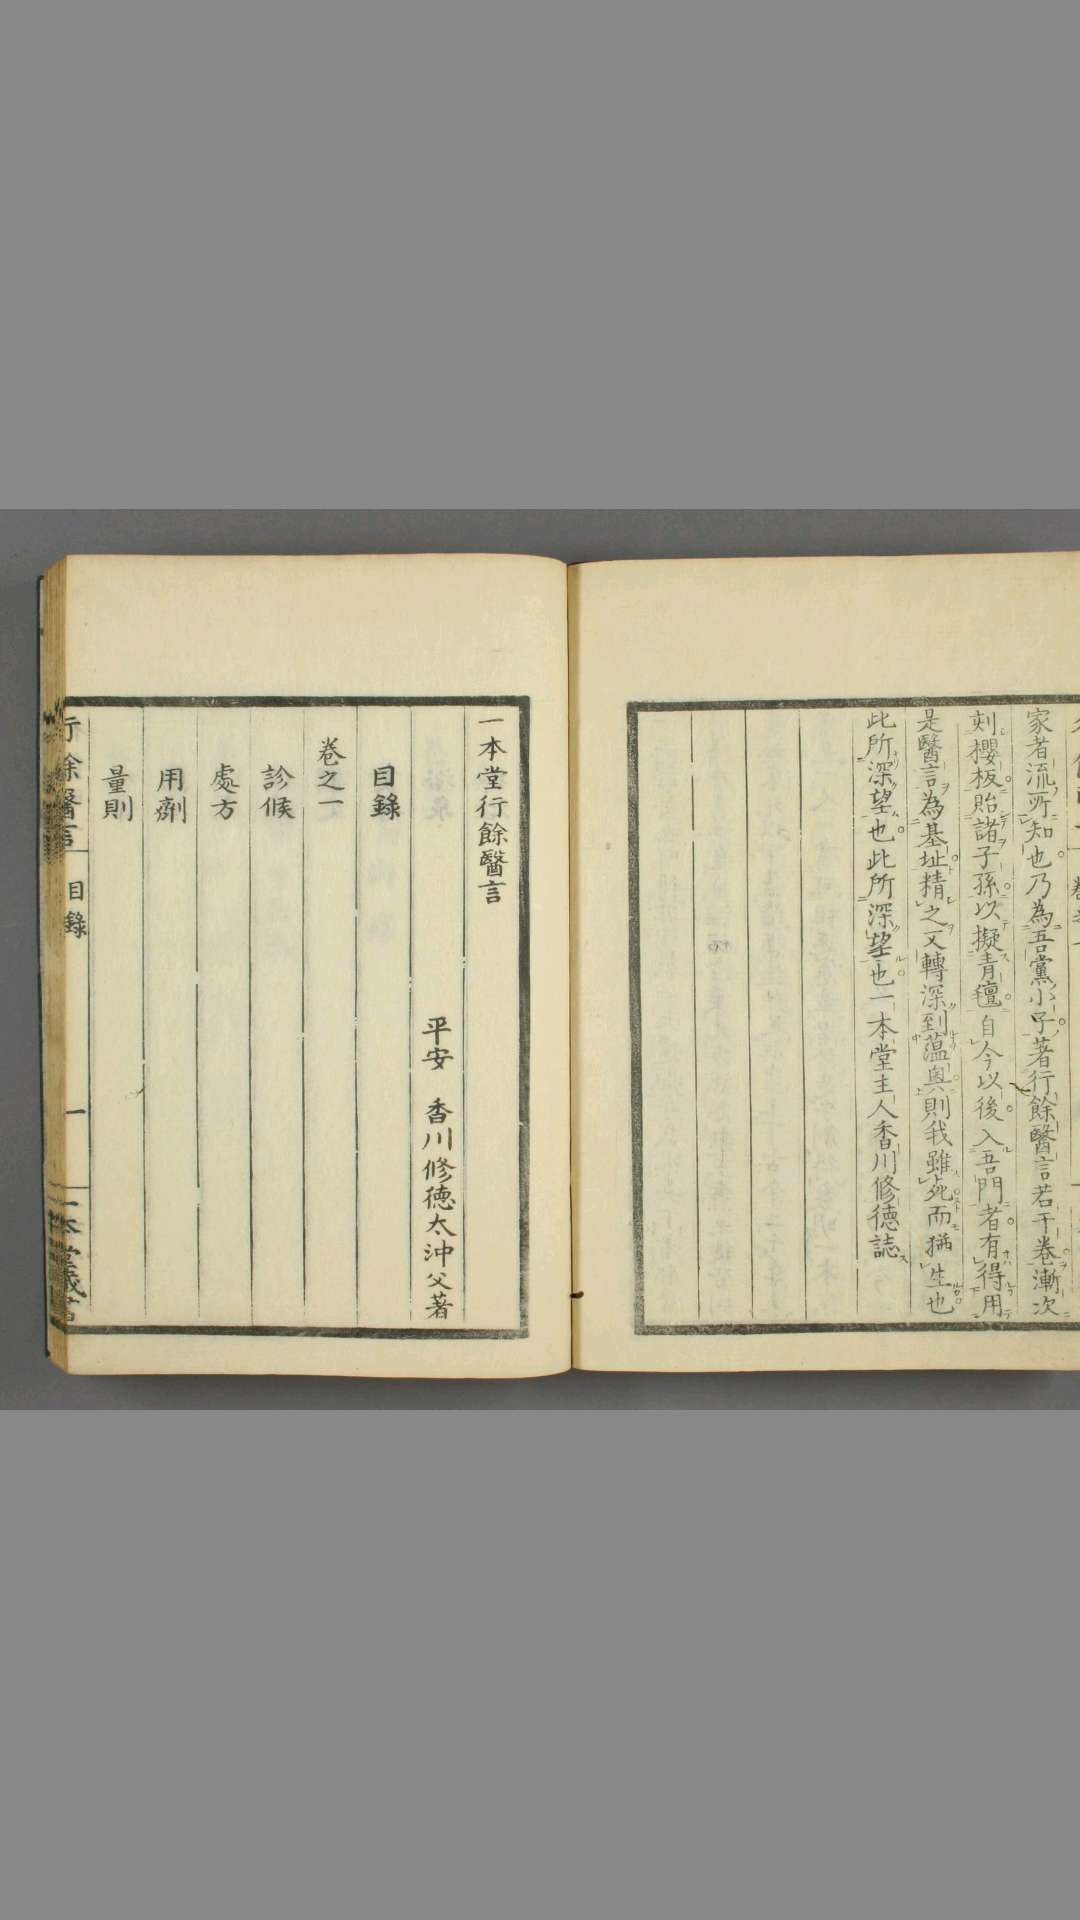 家者流所知也乃為吾黨小子著行餘醫言若干卷漸次
刻櫻板貽諸子孫以擬青氊自今以後入吾門者有得用
是醫言為基址精之又轉深到蘊奥則我雖死而猶生也
此所深望也此所深望也一本堂主人香川修德誌
一本堂行餘醫言
平安 香川修德太沖父著
目錄
卷之一
診候
處方
用劑
量則
行餘醫言 目錄 一 一本堂藏書